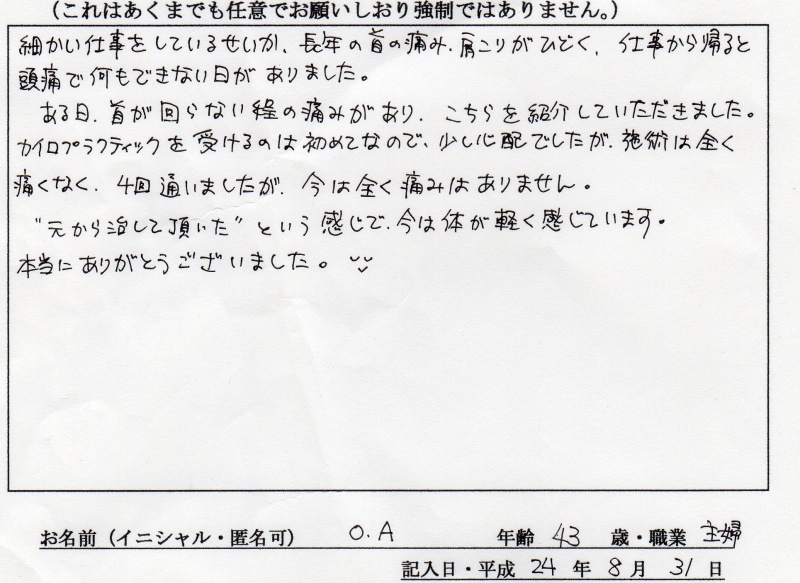 (これはあくまでも任意でお願いしおり強制ではありません。)
細かい仕事をしているせいか、長年の首の痛み、肩こりがひどく、仕事から帰ると
頭痛で何もできない日がありました。
ある日、首が回らない程の痛みがあり、こちらを紹介していただきました。
カイロプラクティックを受けるのは初めてなので、少し心配でしたが、施術は全く
痛くなく、4回通いましたが、今は全く痛みはありません。
“元から治して頂いた”という感じで、今は体が軽く感じています。
本当にありがとうございました。
お名前(イニシャル・匿名可) O.A 年齢 43 歳・職業 主婦
記入日・平成 24 年 8 月 31 日